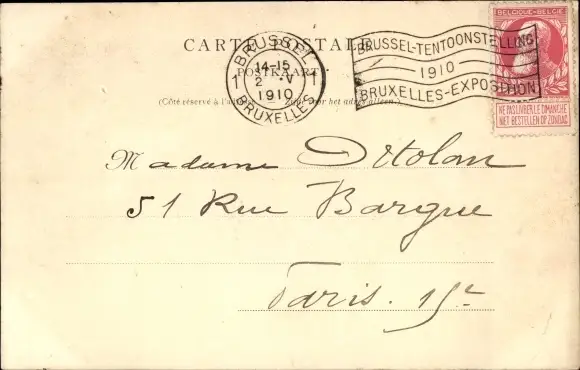 CARTE POSTALE
POSTKAART
(Côté réservé à l'a voor het adres alleen.)
BRUSSEL
14-15
1 2 V 1
1910
BRUXELLES
BRUSSEL-TENTOONSTELLING
1910
BRUXELLES-EXPOSITION
BELGIQUE-BELGIË
NE PAS LIVRER LE DIMANCHE
NIET BESTELLEN OP ZONDAG
Madame
51 Rue Bargue
Paris. 15e